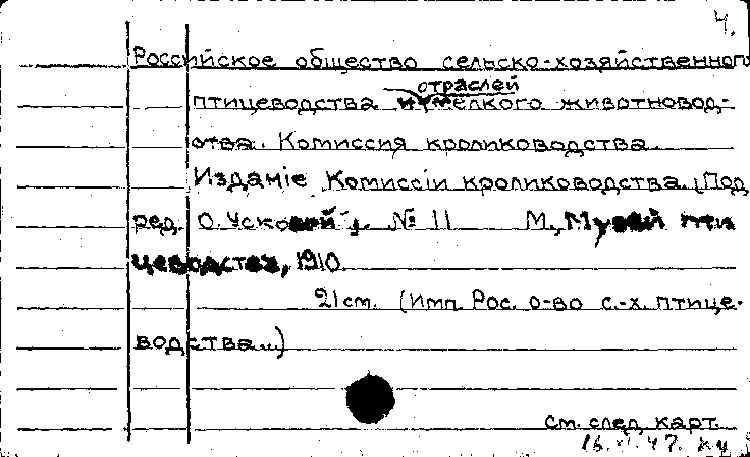 4.
Российское общество сельско-хозяйственного
отраслей
птицеводства и мелкого животновод-
ства. Комиссия кролиководства.
Изданіе Комиссіи кролиководства. (Под
ред. О. Усковой). № 11 М., Музей пти
цеводства, 1910.
21 см. (Имп. Рос. о-во с.-х. птице-
водства...)
см. след. карт.
47.